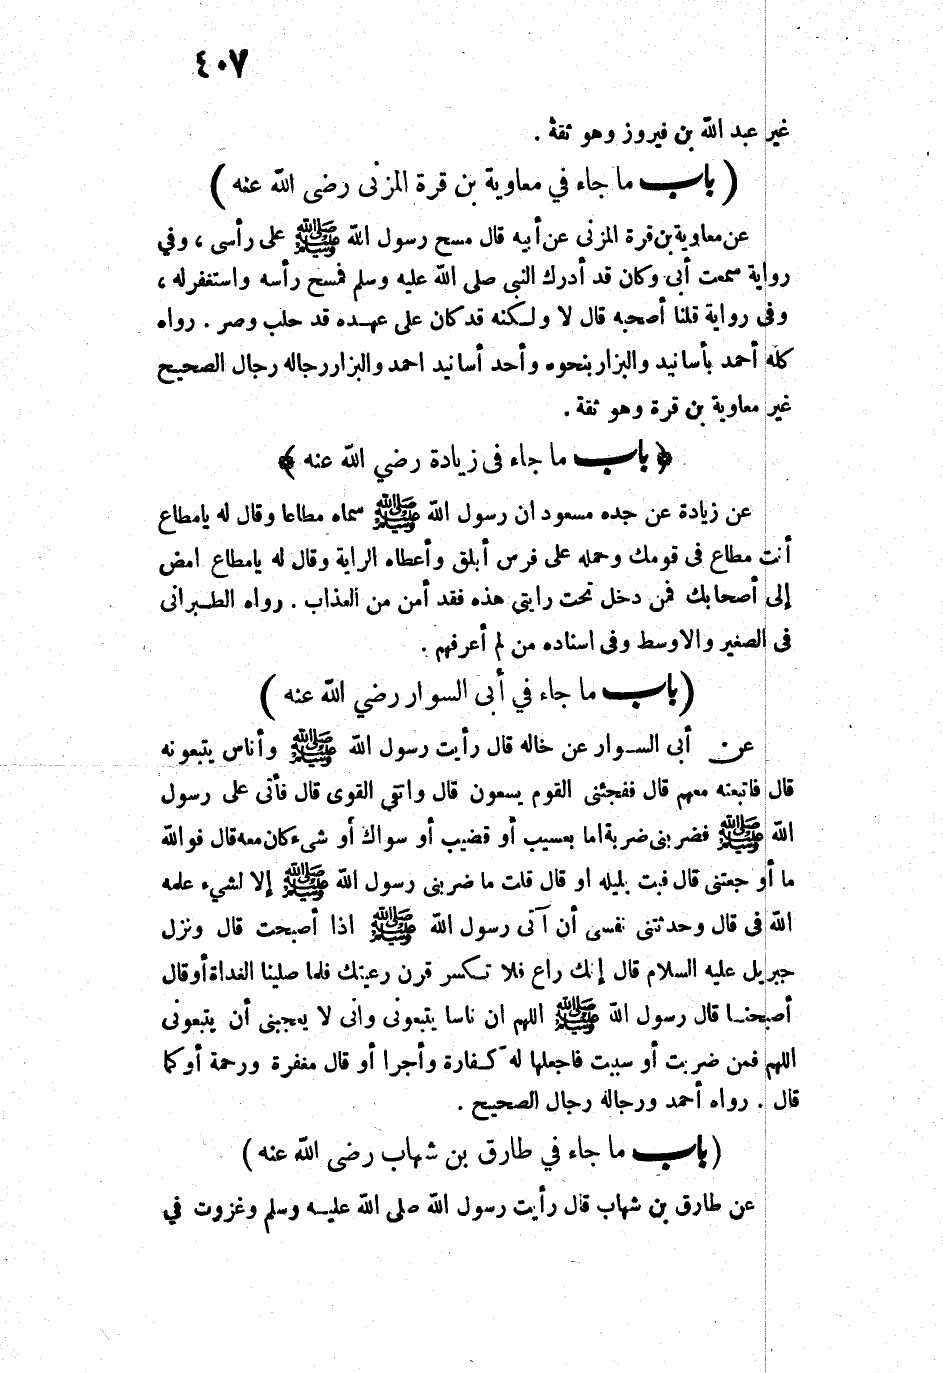 ٤٠٧
غير عبد الله بن فيروز وهو ثقة .
( باب ما جاء في معاوية بن قرة المزنى رضى الله عنه )
عن معاوية بن قرة المزنى عن أبيه قال مسح رسول الله ﷺ على رأسى ، وفي
رواية سمعت أبى وكان قد أدرك النبى صلى الله عليه وسلم فمسح رأسه واستغفر له ،
وفى رواية قلنا أصحبه قال لا ولكنه قد كان على عهده قد حلب وصر . رواه
كله أحمد بأسانيد والبزار بنحوه وأحد أسانيد احمد والبزار رجاله رجال الصحيح
غير معاوية بن قرة وهو ثقة .
﴿ باب ما جاء فى زيادة رضي الله عنه ﴾
عن زيادة عن جده مسعود ان رسول الله ﷺ سماه مطاعا وقال له يامطاع
أنت مطاع فى قومك وحمله على فرس أبلق وأعطاه الراية وقال له يامطاع امض
إلى أصحابك فمن دخل تحت رايتى هذه فقد أمن من العذاب . رواه الطبرانى
فى الصغير والاوسط وفى اسناده من لم أعرفهم .
( باب ما جاء في أبى السوار رضي الله عنه )
عن أبى السوار عن خاله قال رأيت رسول الله ﷺ وأناس يتبعونه
قال فاتبعته معهم قال ففجئنى القوم يسعون قال واتقى القوى قال فأتى على رسول
الله ﷺ فضربنى ضربة اما بعسيب أو قضيب أو سواك أو شىء كان معه قال فوالله
ما أوجعتنى قال فبت بليله او قال قلت ما ضربنى رسول الله ﷺ إلا لشيء علمه
الله فى قال وحدثتنى نفسى أن آتى رسول الله ﷺ اذا أصبحت قال ونزل
جبريل عليه السلام قال إنك راع فلا تكسر قرن رعيتك فلما صلينا الغداة أوقال
أصبحنا قال رسول الله ﷺ اللهم ان ناسا يتبعونى وانى لا يعجبنى أن يتبعونى
اللهم فمن ضربت أو سببت فاجعلها له كفارة وأجرا أو قال مغفرة ورحمة أوكما
قال . رواه أحمد ورجاله رجال الصحيح .
( باب ما جاء في طارق بن شهاب رضى الله عنه )
عن طارق بن شهاب قال رأيت رسول الله صلى الله عليه وسلم وغزوت في